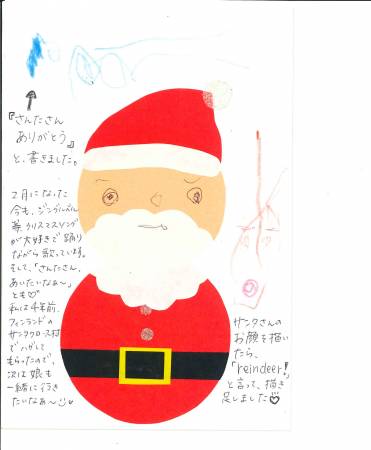 『さんたさん
ありがとう』
と、書きました。
2月になった
今も、ジングルベル
等、クリスマスソング
が大好きで踊り
ながら歌っています。
そして、「さんたさん、
あいたいなぁ〜」
とも♡
私は4年前、
フィンランドの
サンタクロース村
でハガキして
もらったので、
次は娘も
一緒に行き
たいなぁ〜
サンタさんの
お顔を描いて
いたら、
「reindeer!」
と言って、描き
足しました♡